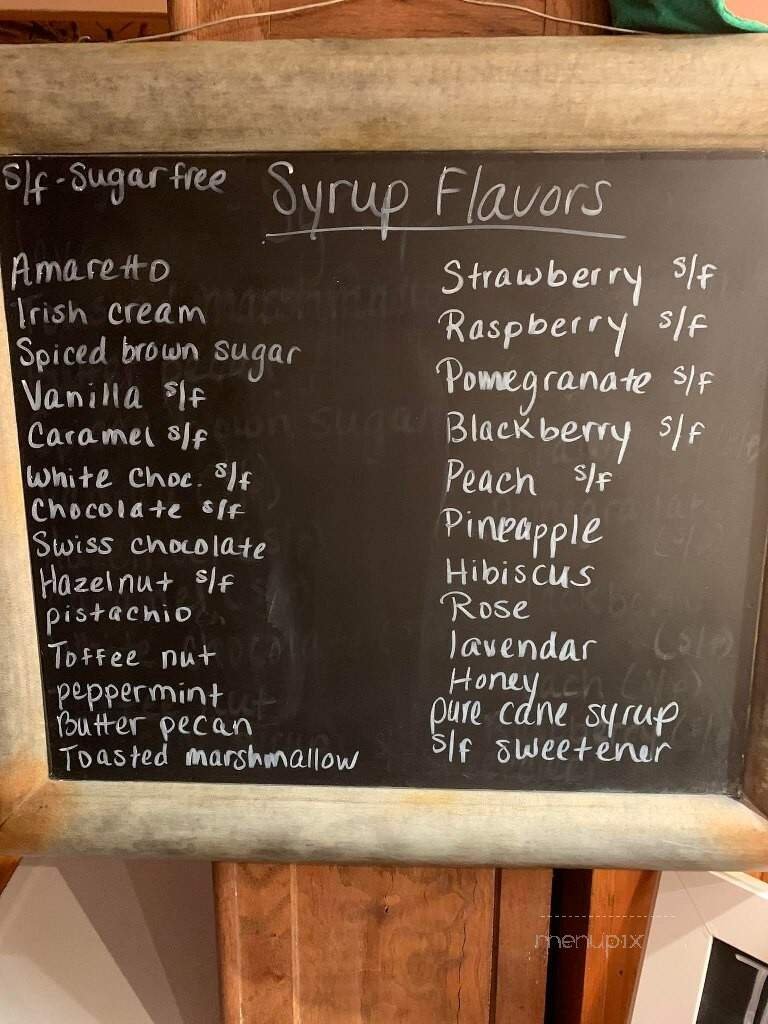 s/f - Sugar free
Syrup Flavors
Amaretto
Irish cream
Spiced brown sugar
Vanilla s/f
Caramel s/f
White choc. s/f
Chocolate s/f
Swiss chocolate
Hazelnut s/f
pistachio
Toffee nut
peppermint
Butter pecan
Toasted marshmallow
Strawberry s/f
Raspberry s/f
Pomegranate s/f
Blackberry s/f
Peach s/f
Pineapple
Hibiscus
Rose
lavendar
Honey
pure cane syrup
s/f sweetener
menupix